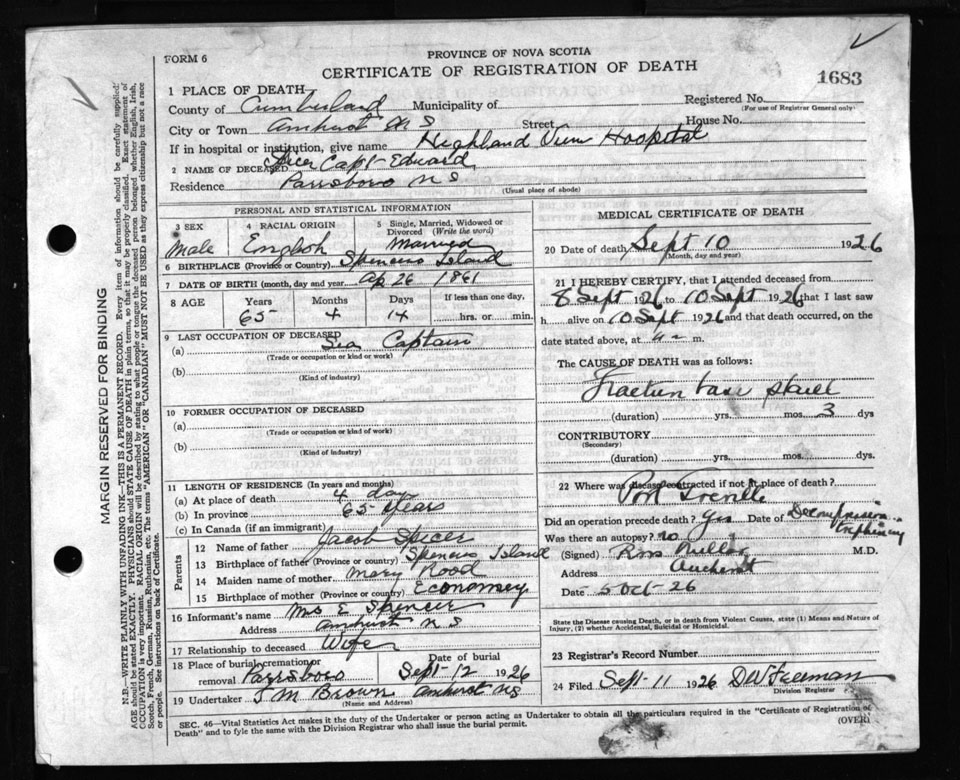 FORM 6
PROVINCE OF NOVA SCOTIA
CERTIFICATE OF REGISTRATION OF DEATH
1683
1 PLACE OF DEATH
County of Cumberland Municipality of
Registered No.
(For use of Registrar General only)
City or Town Amherst N S Street House No.
If in hospital or institution, give name Highland View Hospital
2 NAME OF DECEASED Spicer Capt Edward
Residence Parrsboro N S
(Usual place of abode)
PERSONAL AND STATISTICAL INFORMATION
3 SEX Male
4 RACIAL ORIGIN English
5 Single, Married, Widowed or Divorced (Write the word) Married
6 BIRTHPLACE (Province or Country) Spencers Island
7 DATE OF BIRTH (month, day and year) Ap 26 1861
8 AGE Years Months Days If less than one day,
65 4 14 hrs. or min.
9 LAST OCCUPATION OF DECEASED
(a) Sea Captain
(Trade or occupation or kind or work)
(b)
(Kind of industry)
10 FORMER OCCUPATION OF DECEASED
(a)
(Trade or occupation or kind of work)
(b)
(Kind of industry)
11 LENGTH OF RESIDENCE (In years and months)
(a) At place of death 4 days
(b) In province 65 years
(c) In Canada (if an immigrant)
Parents
12 Name of father Jacob Spicer
13 Birthplace of father (Province or country) Spencers Island
14 Maiden name of mother Mary Hood
15 Birthplace of mother (Province or country) Economey
16 Informant's name Mrs E Spencer
Address Amherst N S
17 Relationship to deceased Wife
18 Place of burial, cremation or removal Parrsboro
Date of burial Sept 12 1926
19 Undertaker J M Brown Amherst NS
(Name and Address)
MEDICAL CERTIFICATE OF DEATH
20 Date of death Sept 10 1926
(Month, day and year)
21 I HEREBY CERTIFY, that I attended deceased from
8 Sept 1926 to 10 Sept 1926 that I last saw
h alive on 10 Sept 1926 and that death occurred, on the
date stated above, at a m.
The CAUSE OF DEATH was as follows:
Fracture base skull
(duration) yrs. mos. 3 dys
CONTRIBUTORY
(Secondary)
(duration) yrs. mos. dys
22 Where was disease contracted if not at place of death?
Port Greville
Did an operation precede death? Yes Date of Decompression trephining
Was there an autopsy? no
(Signed) Ross M.D.
Address Amherst
Date 5 Oct - 26
State the Disease causing Death, or in death from Violent Causes, state (1) Means and Nature of
Injury, (2) whether Accidental, Suicidal or Homicidal.
23 Registrar's Record Number
24 Filed Sept 11 1926 DW Freeman
Division Registrar
SEC. 46—Vital Statistics Act makes it the duty of the Undertaker or person acting as Undertaker to obtain all the particulars required in the "Certificate of Registration of
Death" and to fyle the same with the Division Registrar who shall issue the burial permit.
(OVER)
MARGIN RESERVED FOR BINDING
N.B.—WRITE PLAINLY WITH UNFADING INK—THIS IS A PERMANENT RECORD. Every item of information should be carefully supplied.
AGE should be stated EXACTLY. PHYSICIANS should STATE CAUSE OF DEATH in plain terms, so that it may be properly classified. Exact statement of
OCCUPATION is very important. RACIAL ORIGIN will be described by stating to what people or tongue the deceased person belonged whether English, Irish,
Scotch, French, German, Russian, Ruthenian, etc. The terms "AMERICAN" OR "CANADIAN" MUST NOT BE USED as they express citizenship but not a race
or people. See instructions on back of Certificate.